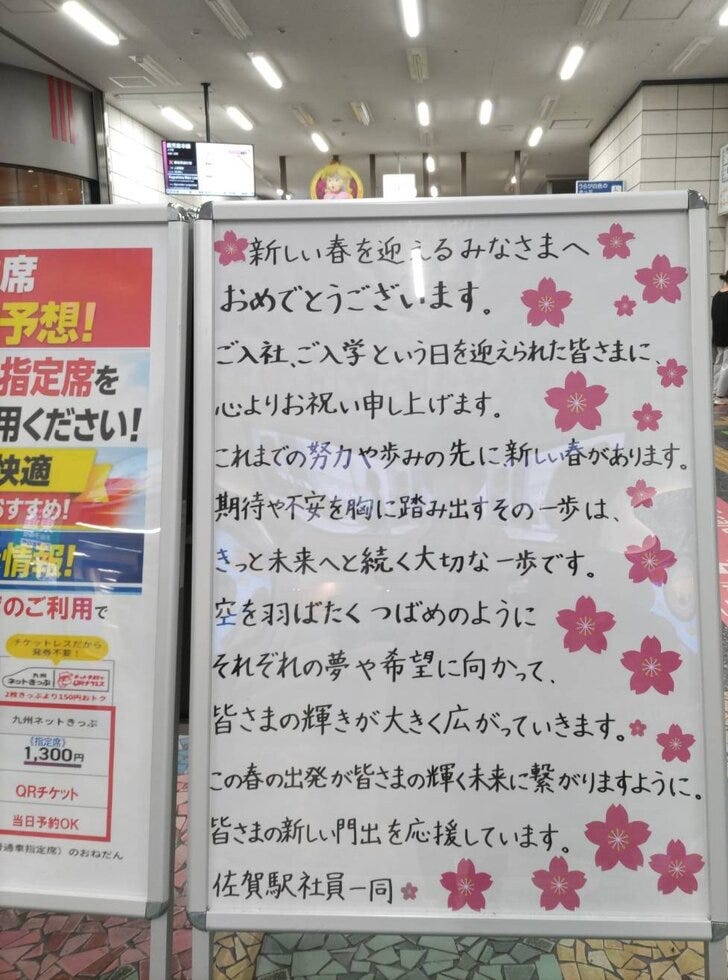 新しい春を迎えるみなさまへ
おめでとうございます。
ご入社、ご入学という日を迎えられた皆さまに、
心よりお祝い申し上げます。
これまでの努力や歩みの先に新しい春があります。
期待や不安を胸に踏み出すその一歩は、
きっと未来へと続く大切な一歩です。
空を羽ばたくつばめのように
それぞれの夢や希望に向かって、
皆さまの輝きが大きく広がっていきます。
この春の出発が皆さまの輝く未来に繋がりますように。
皆さまの新しい門出を応援しています。
佐賀駅社員一同
席
予想!
指定席を
用ください!
快適
おすすめ!
情報!
のご利用で
チケットレスだから
発券不要!
九州
ネットきっぷ
2枚きっぷより150円おトク
九州ネットきっぷ
(指定席)
1,300円
QRチケット
当日予約OK
通車指定席)のおねだん